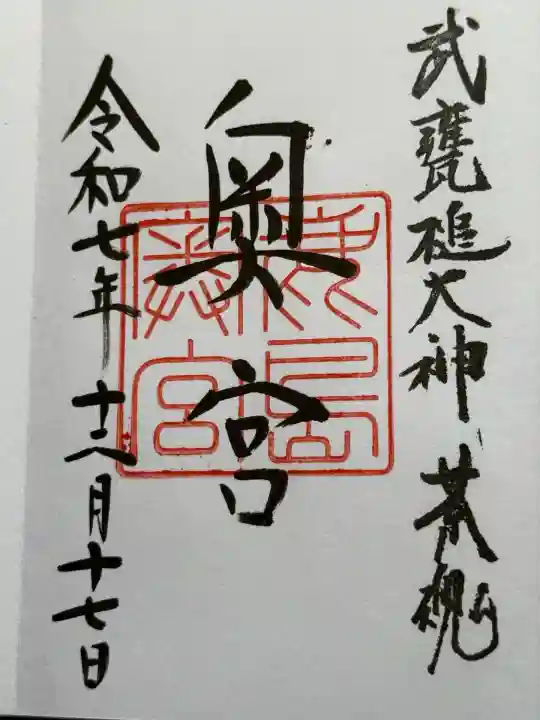 武甕槌大神 荒魂
奥宮
鹿島奥宮
令和七年十二月十七日